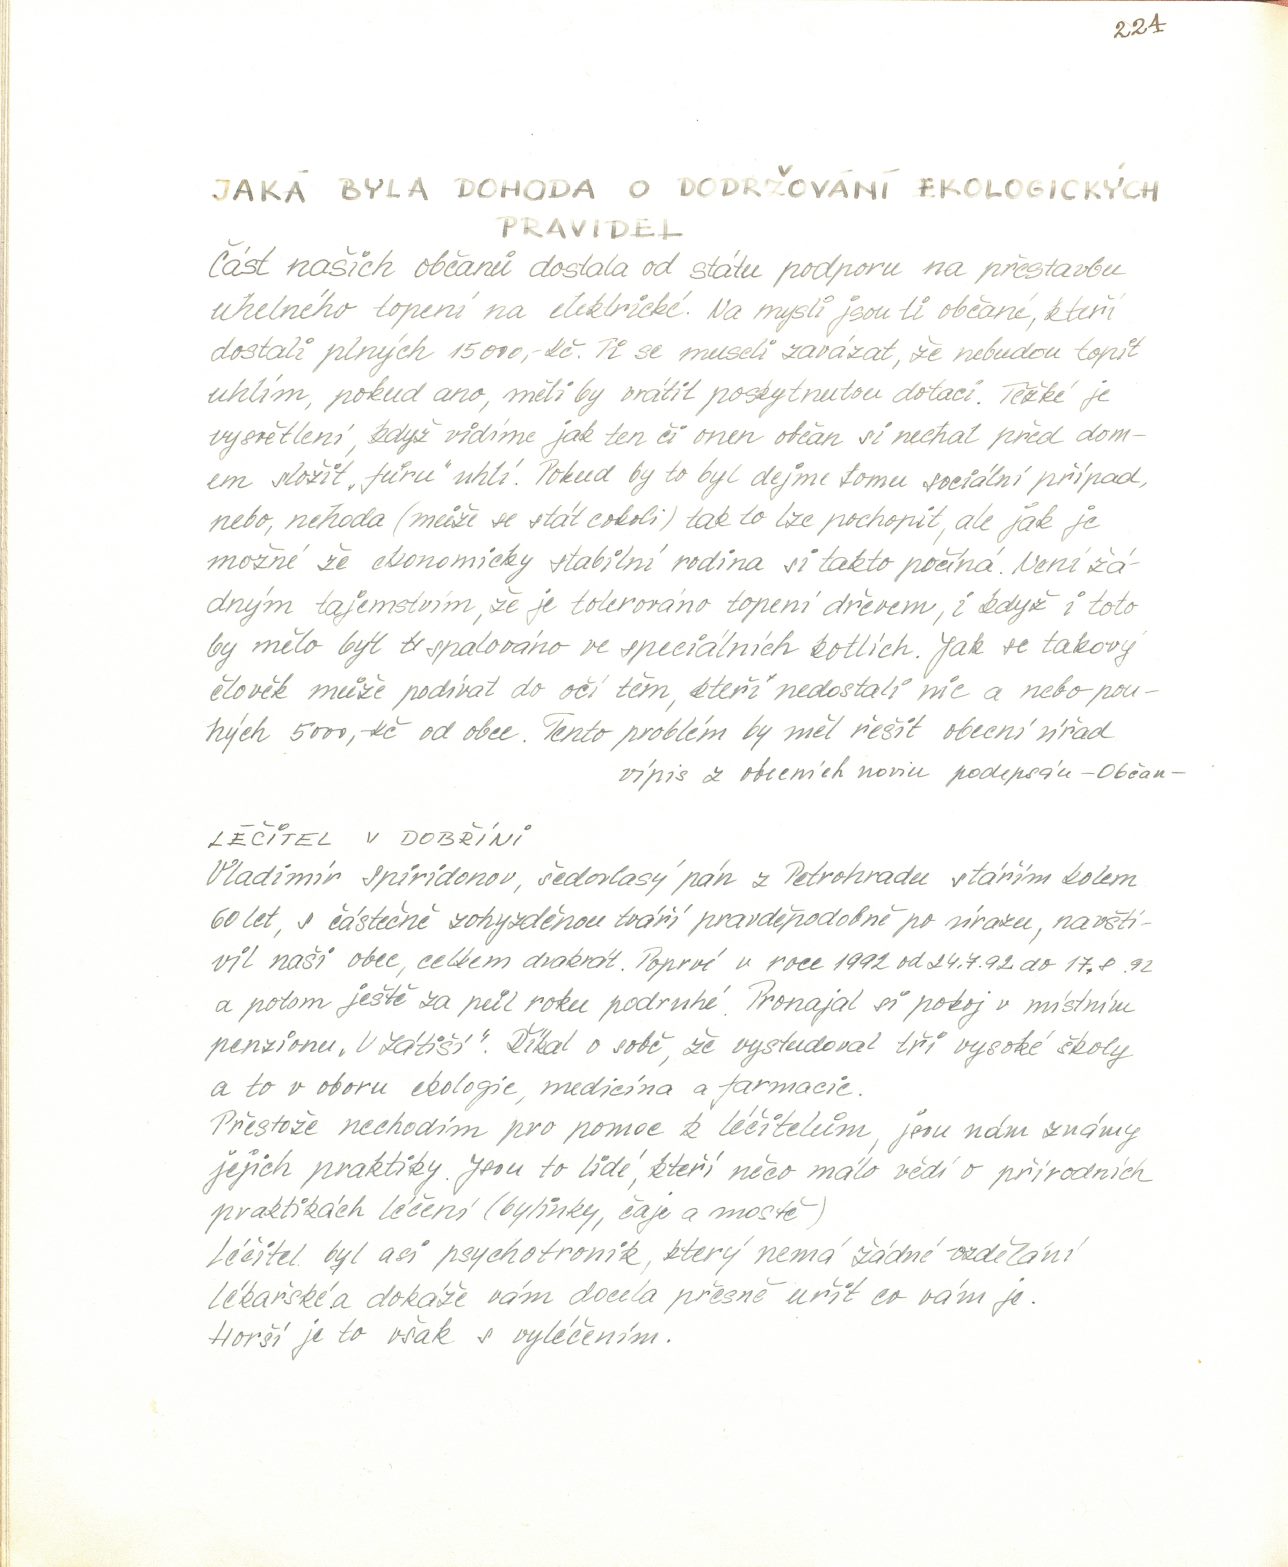 224
JAKÁ BYLA DOHODA O DODRŽOVÁNÍ EKOLOGICKÝCH
PRAVIDEL
Část našich občanů dostala od státu podporu na přestavbu
uhelného topení na elektrické. Na mysli jsou ti občané, kteří
dostali plných 15000,-Kč. Ti se museli zavázat, že nebudou topit
uhlím, pokud ano, měli by vrátit poskytnutou dotaci. Těžké je
vysvětlení, když vidíme jak ten či onen občan si nechal před dom-
em složit „fůru" uhlí. Pokud by to byl dejme tomu sociální případ,
nebo, nehoda (může se stát cokoli) tak to lze pochopit, ale jak je
možné že ekonomicky stabilní rodina si takto počíná. Není žá-
dným tajemstvím, že je tolerováno topení dřevem, i když i toto
by mělo být spalováno ve speciálních kotlích. Jak se takový
člověk může podívat do očí těm, kteří nedostali nic a nebo pou-
hých 5000,-Kč od obce. Tento problém by měl řešit obecní úřad
výpis z obecních novin podepsán -Občan-
LÉČITEL V DOBŘÍNI
Vladimír Spiridonov, šedovlasý pán z Petrohradu stářím kolem
60 let, s částečně zohyzděnou tváří pravděpodobně po úrazu, navští-
vil naši obec, celkem dvakrát. Poprvé v roce 1992 od 24.7.92 do 17.8.92
a potom ještě za půl roku podruhé. Pronajal si pokoj v místním
penzionu „V Zátiší". Říkal o sobě, že vystudoval tři vysoké školy
a to v oboru ekologie, medicína a farmacie.
Přestože nechodím pro pomoc k léčitelům, jsou nám známy
jejich praktiky. Jsou to lidé, kteří něco málo vědí o přírodních
praktikách léčení (bylinky, čaje a mastě)
Léčitel byl asi psychotronik, který nemá žádné vzdělání
lékařské a dokáže vám docela přesně určit co vám je.
Horší je to však s vyléčením.